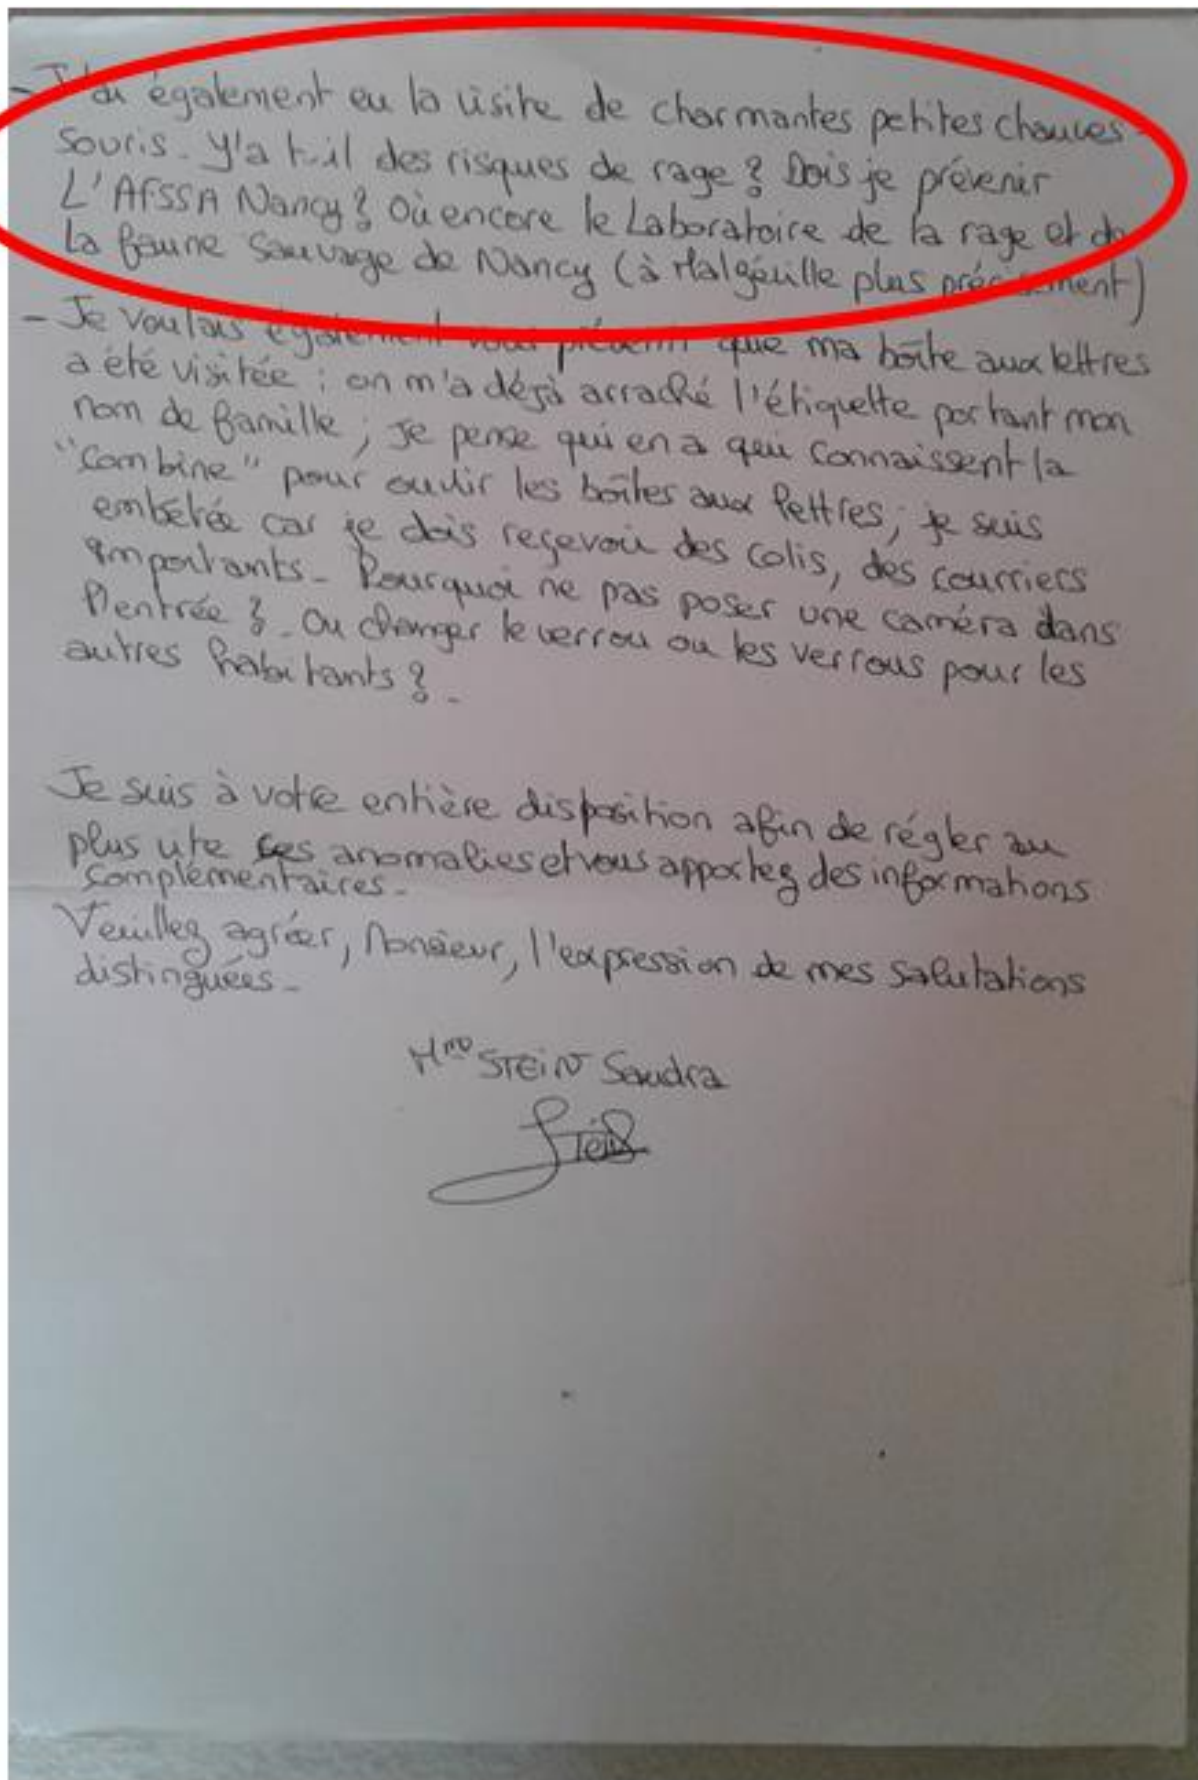 - J'ai également eu la visite de charmantes petites chauves-
souris. Y'a t-il des risques de rage ? Dois je prévenir
L'AFSSA Nancy ? Où encore le Laboratoire de la rage et de
la faune sauvage de Nancy (à Malzéville plus précisément)
- Je voulais également vous prévenir que ma boîte aux lettres
a été visitée : on m'a déjà arraché l'étiquette portant mon
nom de famille ; je pense qui en a qui connaissent la
"combine" pour ouvrir les boîtes aux lettres ; je suis
embêtée car je dois reçevoir des colis, des courriers
importants - Pourquoi ne pas poser une caméra dans
l'entrée ? - Ou changer le verrou ou les verrous pour les
autres habitants ? -
Je suis à votre entière disposition afin de régler au
plus vite ces anomalies et vous apportez des informations
complémentaires -
Veuillez agréer, Monsieur, l'expression de mes salutations
distinguées -
Mme STEIN Sandra
Stein